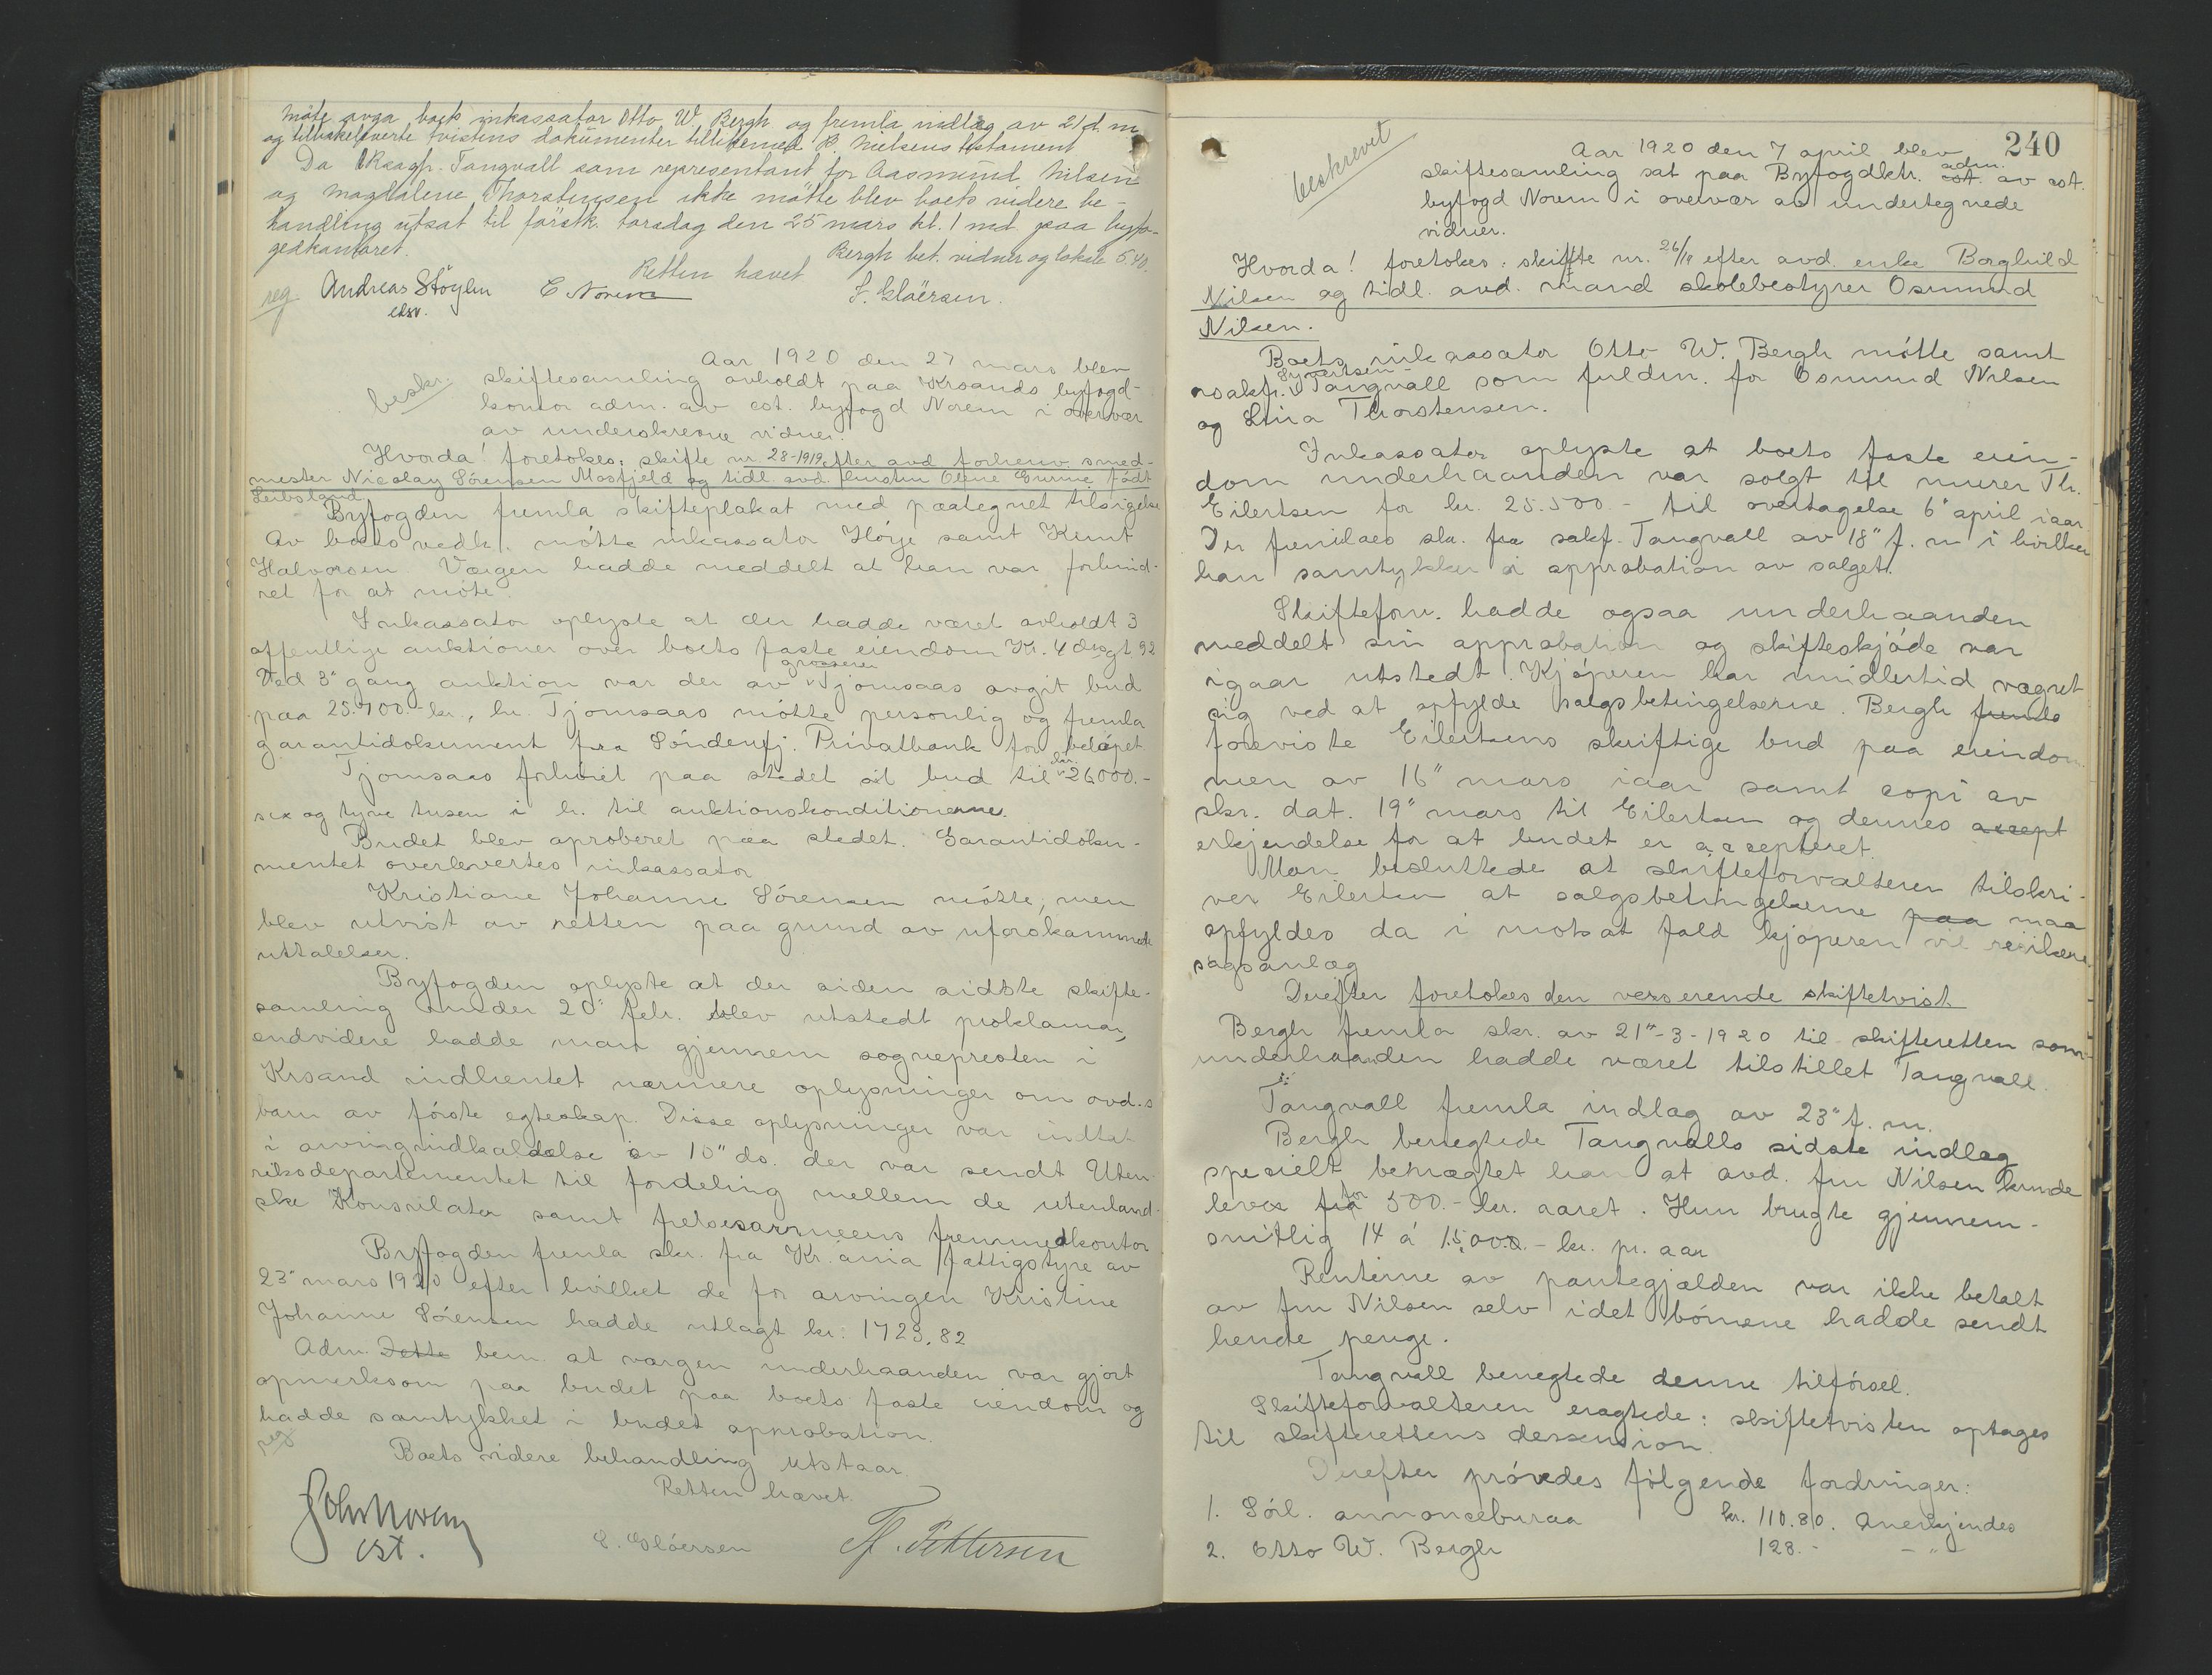 Møte avga boets inkassator Otto W. Bergh og fremla indlæg av 21 d. m.
og tilbakeleverte tvistens dokumenter tillikemed B. Nielsens testament
Da Orsagf. Tangvall som representant for Aasmund Nilsen
og Magdalene Thorstensen ikke møtte blev boets videre be-
handling utsat til førstk. torsdag den 25 mars kl. 1 md. paa byfo-
gedkontoret.
Bergh bet. vidner og lokale 5.40.
Retten hævet
reg. Andreas Støylen E Norem S. Gloërsen.
cst.
Aar 1920 den 27 mars blev
beskr. skiftesamling avholdt paa Krsands byfogd-
kontor adm. av cst. byfogd Norem i overvær
av underskrevne vidner.
Hvorda! foretokes: skifte nr. 28-1919 efter avd. forhenv. smed-
mester Nicolay Sørensen Mosfjeld og tidl. avd. hustru Olene Gurine født
Leibsland
Byfogden fremla skifteplakat med paategnet tilsigelse
Av boets vedk. møtte inkassator Høije samt Knut
Halvorsen. Værgen hadde meddelt at han var forhind-
ret for at møte.
Inkassator oplyste at der hadde været avholdt 3
offentlige auktioner over boets faste eiendom Kr. 4 desgt. 92
Ved 3" gang auktion var der av grosserer Tjomsaas avgit bud
paa 25.700.- kr., hr. Tjomsaas møtte personlig og fremla
garantidokument fra Søndenfj. Privatbank for beløpet.
Tjomsaas forhøiet paa stedet sit bud til kr. 26000.-
sex og tyve tusen i kr. til auktionskonditionerne.
Budet blev aproberet paa stedet. Garantidoku-
mentet overlevertes inkassator
Kristiane Johanne Sørensen møtte, men
blev utvist av retten paa grund av uforskammede
uttalelser.
Byfogden oplyste at der siden sidste skifte-
samling under 20" febr. blev utstedt proklama,
endvidere hadde man gjennem sognepresten i
Krsand indhentet nærmere oplysninger om avd.s
barn av første egteskap. Disse oplysninger var indtat
i arvingindkaldelse av 10" ds. der var sendt Uten-
riksdepartementet til fordeling mellem de utenland-
ske Konsulater samt frelsesarmeens fremmedkontor
Byfogden fremla skr. fra Kr.ania fattigstyre av
23" mars 1920 efter hvilket de for arvingen Kristine
Johanne Sørensen hadde utlagt kr. 1723.82
Adm. Dette bem. at værgen underhaanden var gjort
opmerksom paa budet paa boets faste eiendom og
hadde samtykket i budet approbation.
reg
Boets videre behandling utstaar.
Retten hævet.
John Norem
cst. S. Gloërsen Th. Pettersen
240
beskrevet
Aar 1920 den 7 april blev
skiftesamling sat paa Byfogdktr. cst. adm. av cst.
byfogd Norem i overvær av undertegnede
vidner.
Hvorda! foretokes: skifte nr. 26/19 efter avd. enke Borghild
Nilsen og tidl. avd. mand skolebestyrer Osmund
Nilsen.
Boets inkassator Otto W. Bergh møtte samt
orsakfr. Syvertsen-Tangvall som fuldm. for Osmund Nilsen
og Lina Thorstensen.
Inkassator oplyste at boets faste eien-
dom underhaanden var solgt til murer Th.
Eilertsen for kr. 25.500.- til overtagelse 6" april iaar
Der fremlaes skr. fra sakf. Tangvall av 18" f. m i hvilken
han samtykker i approbation av salget.
Skifteforv. hadde ogsaa underhaanden
meddelt sin approbation og skifteskjøde var
igaar utstedt. Kjøperen har imidlertid vægret
sig ved at opfylde salgsbetingelserne. Bergh fremla
foreviste Eilertsens skriftlige bud paa eiendom-
men av 16" mars iaar samt copi av
skr. dat. 19" mars til Eilertsen og dennes accept
erkjendelse for at budet er accepteret.
Man besluttede at skifteforvalteren tilskri-
ver Eilertsen at salgsbetingelserne paa maa
opfyldes da i motsat fald kjøperen vil risikere
sagsanlæg
Derefter foretokes den verserende skiftetvist
Bergh fremla skr. av 21"-3-1920 til skifteretten som
underhaanden hadde været tilstillet Tangvall.
Tangvall fremla indlæg av 23" f. m.
Bergh benegtede Tangvalls sidste indlæg
specielt benægtet han at avd. fru Nilsen kunde
leve fra for 500.- kr. aaret. Hun brugte gjennem-
snitlig 14 á 1500.- kr. pr. aar
Renterne av pantegjælden var ikke betalt
av fru Nilsen selv idet børnene hadde sendt
hende penge.
Tangvall benegtede denne tilførsel.
Skifteforvalteren eragtede: skiftetvisten optages
til skifterettens decision.
Derefter prøvedes følgende fordringer:
1. Sørl. annoncebyraa kr. 110.80. Anerkjendes
2. Otto W. Bergh 128.- -"-